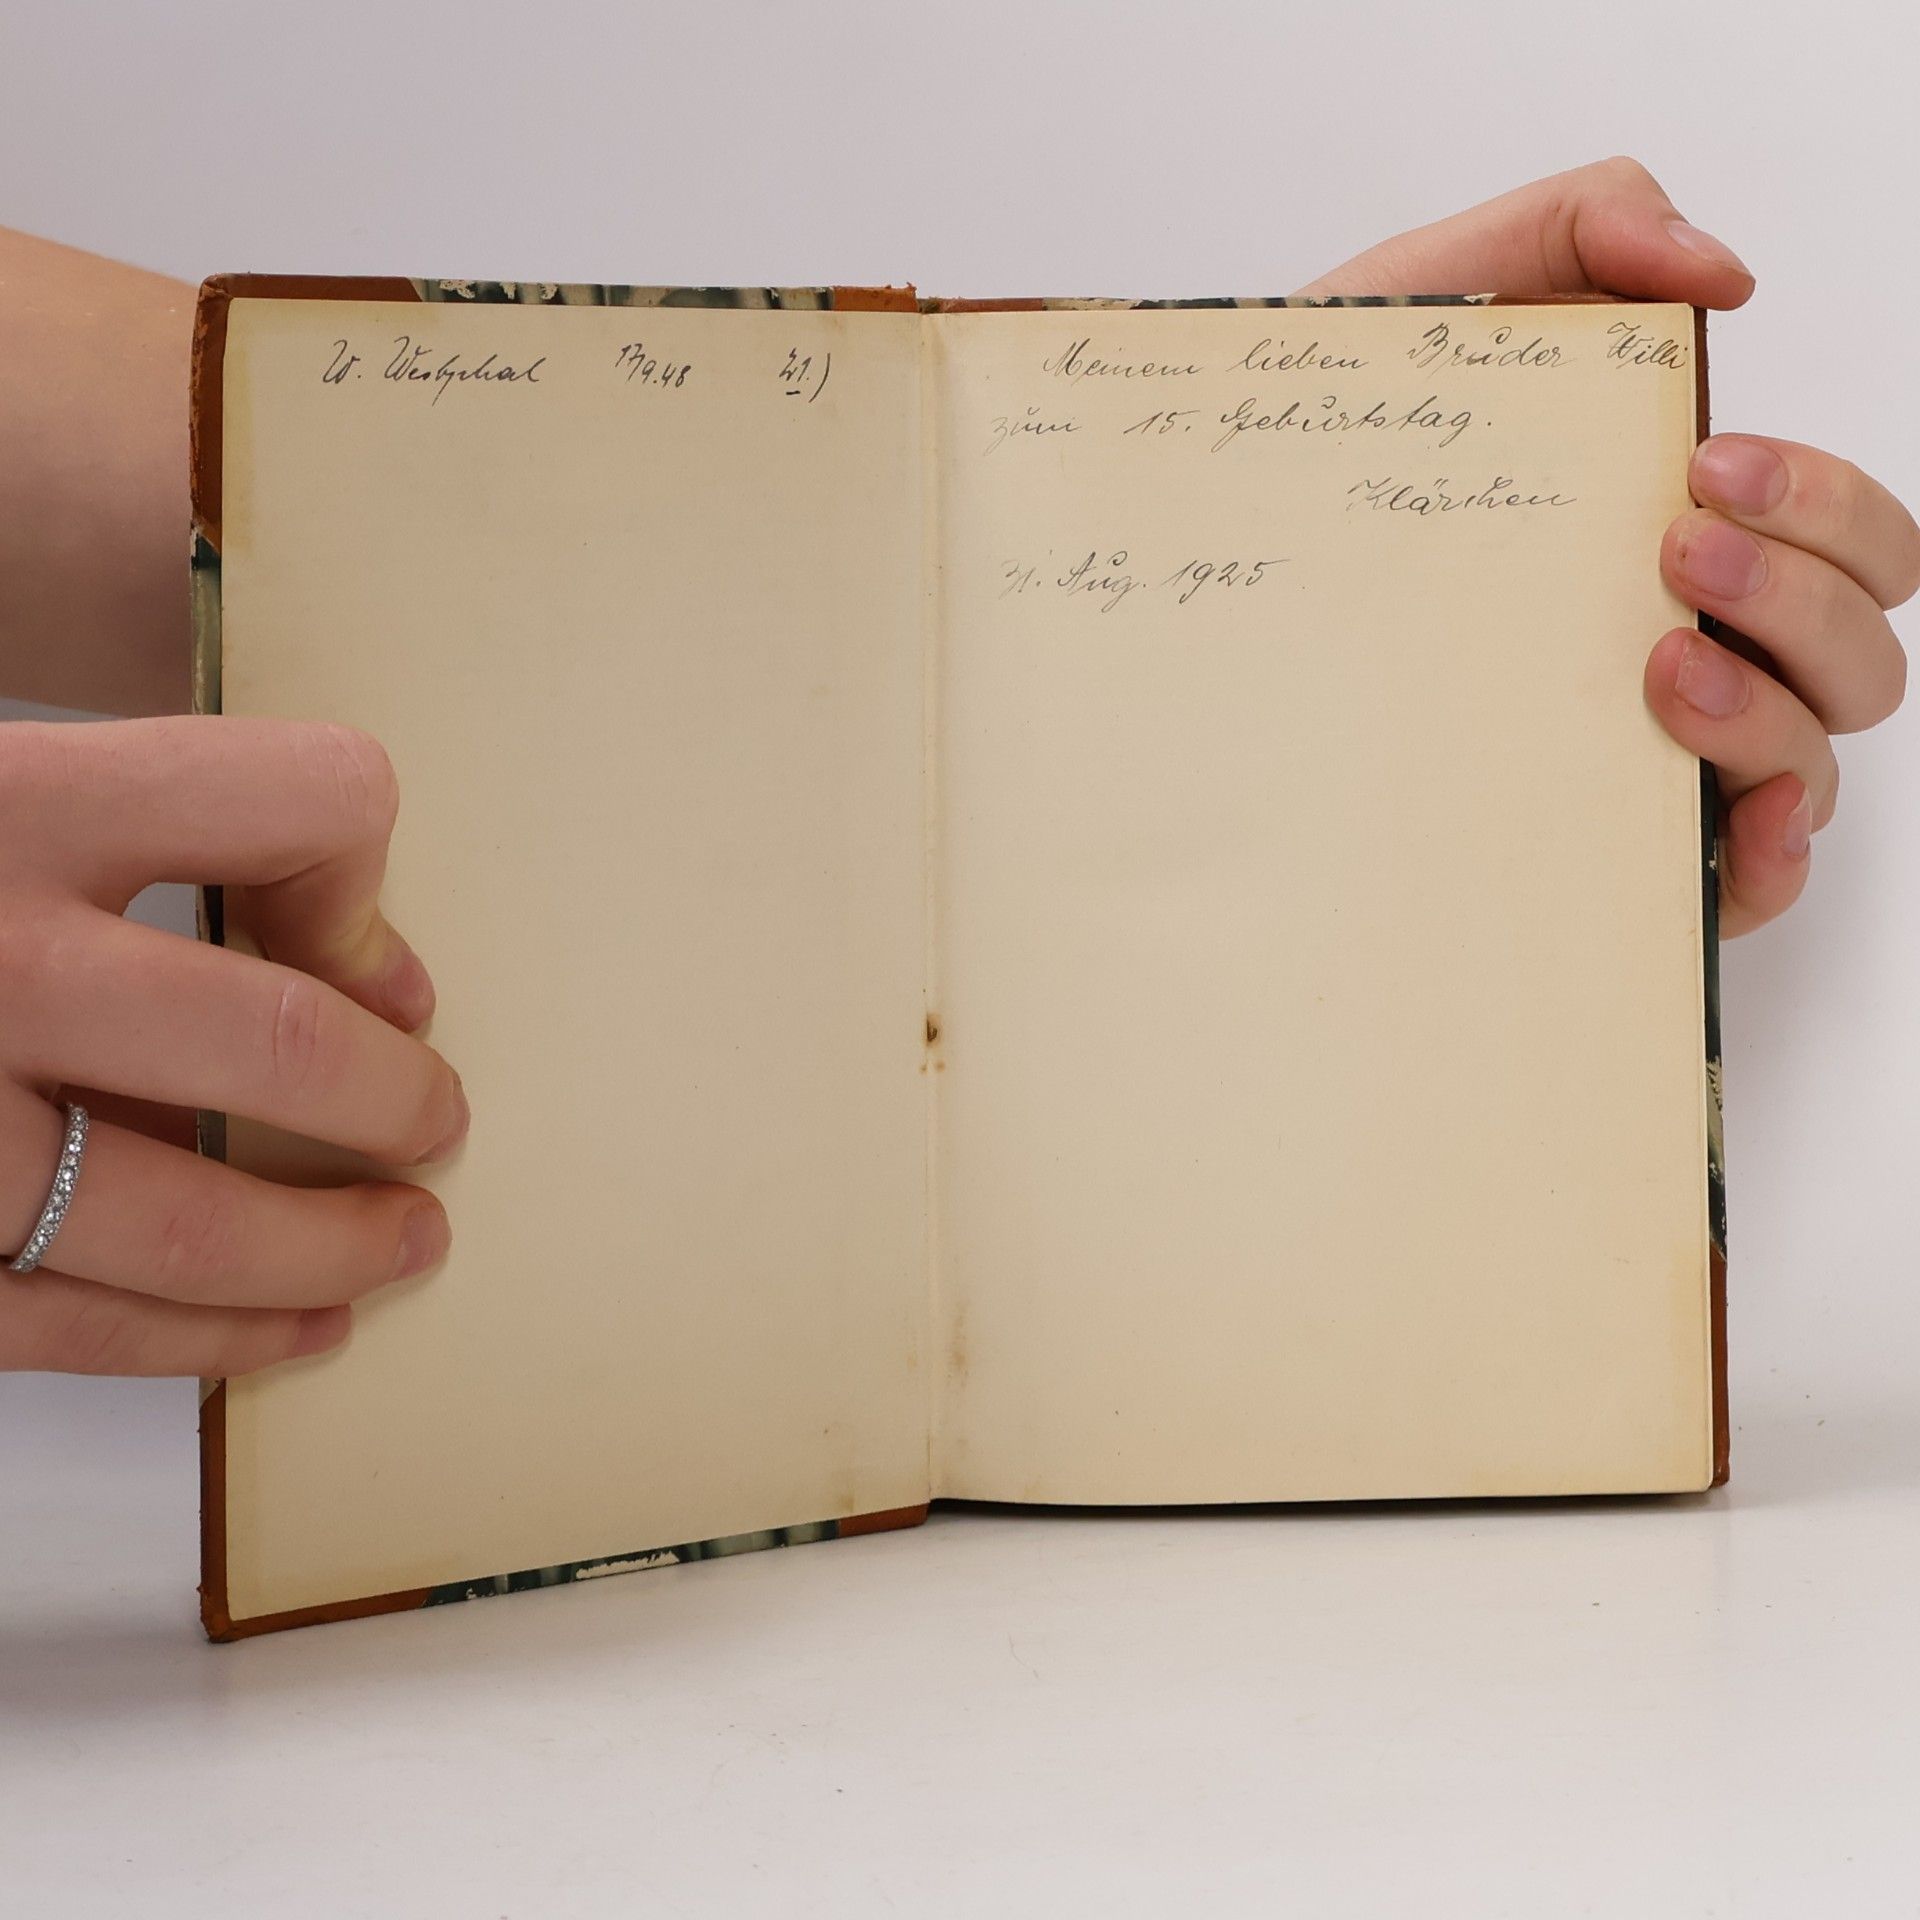 W. Westphal 17/9.48 21.)
Meinem lieben Bruder Willi
zum 15. Geburtstag.
Klärchen
31. Aug. 1925